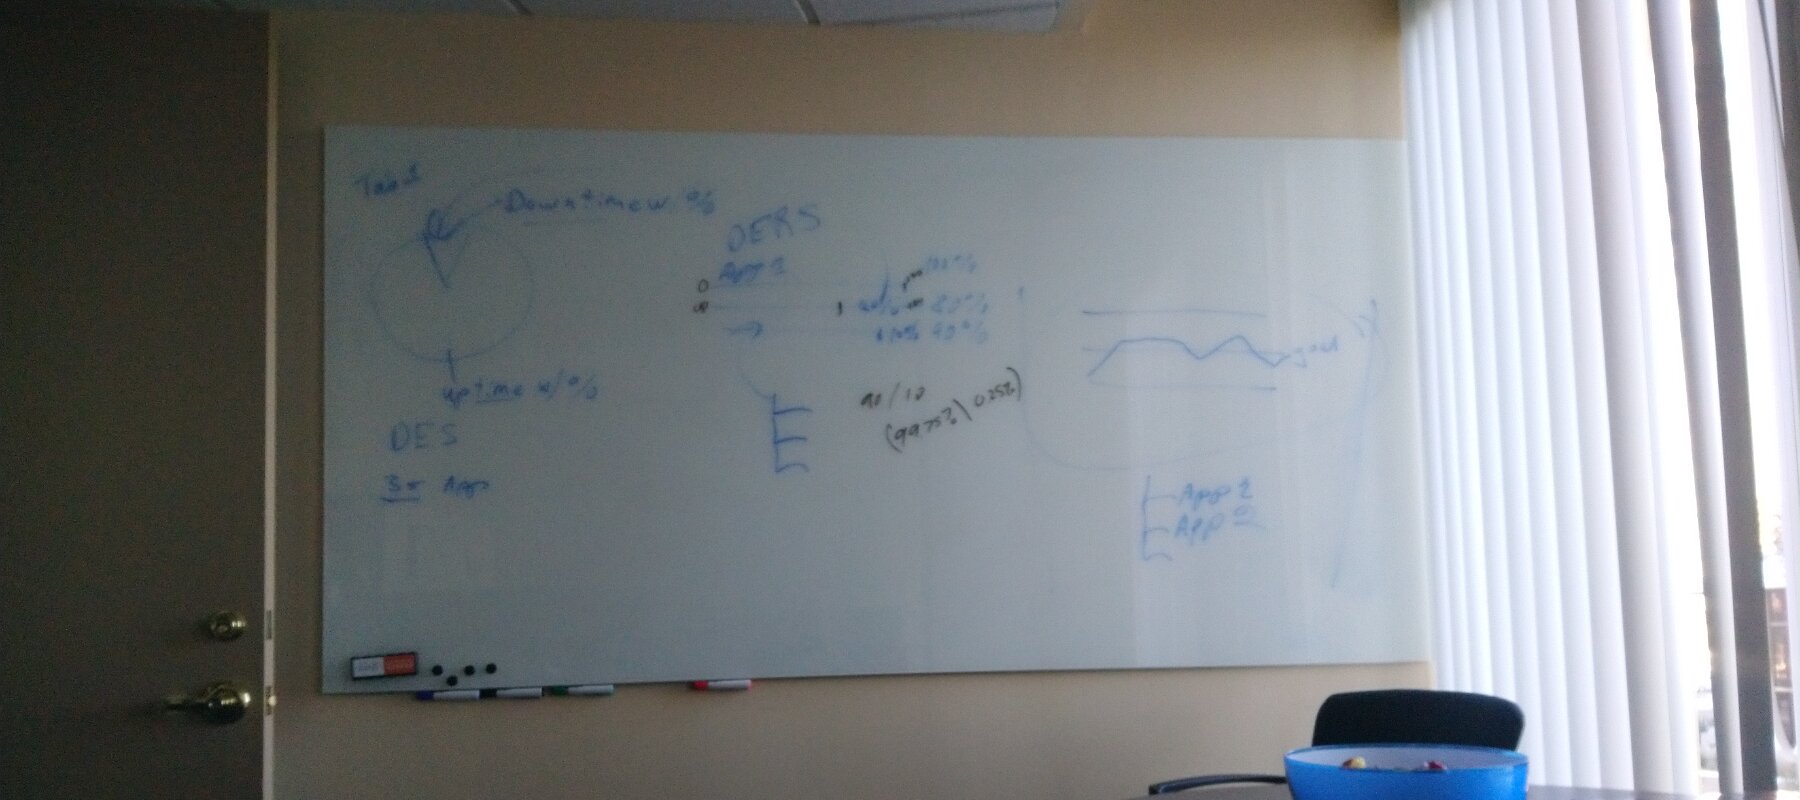 Tab 1
Downtime w. %
uptime w/ %
DES
App
DERS
App 1
100%
80%
90 / 10
(99.75% \ 0.25%)
goal
App 1
App 2